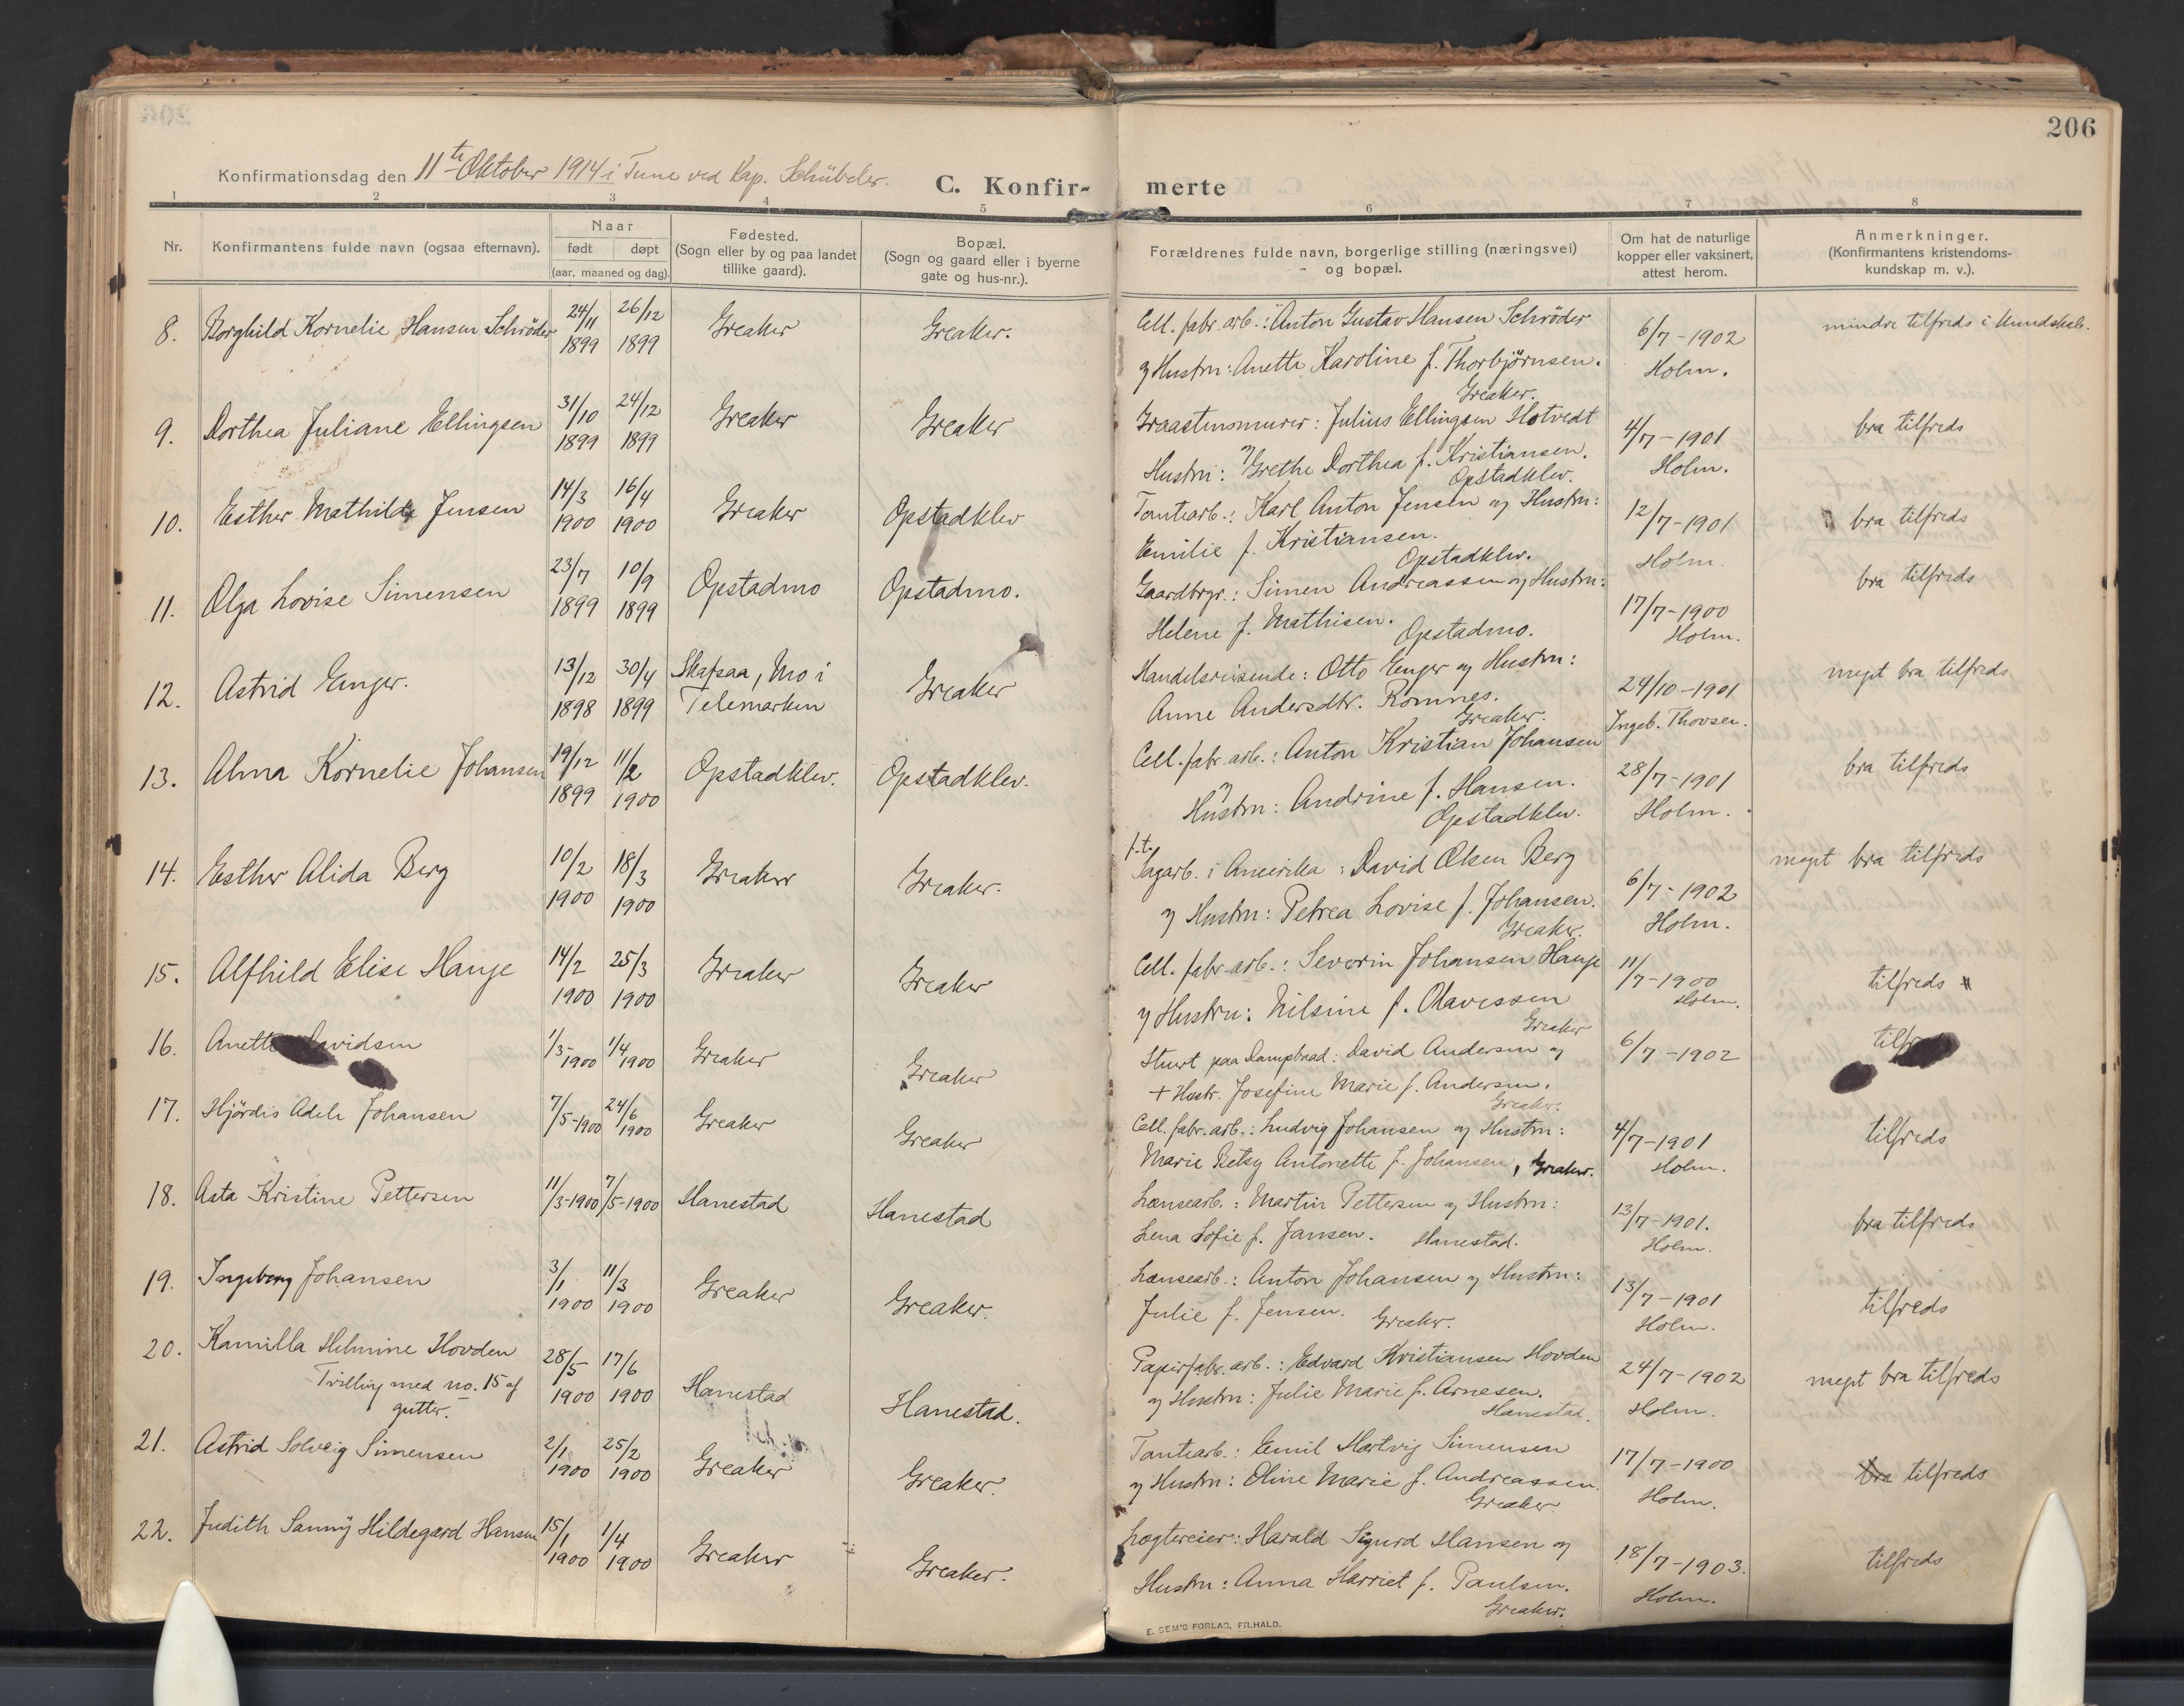 206
Konfirmationsdag den 11te Oktober 1914 i Tune ved Kap. Schübeler.
C. Konfir- merte
1 2 3 4 5 6 7 8
Nr.
Konfirmantens fulde navn (ogsaa efternavn).
Naar
født døpt
(aar, maaned og dag).
Fødested.
(Sogn eller by og paa landet
tillike gaard).
Bopæl.
(Sogn og gaard eller i byerne
gate og hus-nr.).
Forældrenes fulde navn, borgerlige stilling (næringsvei)
og bopæl.
Om hat de naturlige
kopper eller vaksinert,
attest herom.
Anmerkninger.
(Konfirmantens kristendoms-
kundskap m. v.).
8. Borghild Kornelie Hansen Schröder 24/11 1899 26/12 1899 Greaker Greaker. Cell. fabr. arb.: Anton Gustav Hansen Schröder 6/7-1902 mindre tilfreds i Kundskab.
og Hustru: Anette Karoline f. Thorbjørnsen. Holm.
Greaker.
9. Dorthea Juliane Ellingsen 31/10 1899 24/12 1899 Greaker Greaker Graastensmurer: Julius Ellingsen Hotvedt 4/7-1901 bra tilfreds
Hustru: og Grethe Dorthea f. Kristiansen. Holm.
Opstadklev.
10. Esther Mathilde Jensen 14/3 1900 16/4 1900 Greaker Opstadklev Tomtearb.: Karl Anton Jensen og Hustru: 12/7-1901 bra tilfreds
Emilie f. Kristiansen. Holm.
Opstadklev.
11. Olga Lovise Simensen 23/7 1899 10/9 1899 Opstadmo Opstadmo. Gaardbrgr.: Simen Andreassen og Hustru: 17/7-1900 bra tilfreds
Helene f. Mathisen. Opstadmo. Holm.
12. Astrid Enger. 13/12 1898 30/4 1899 Skafsaa, Mo i Telemarken Greaker Handelsreisende: Otto Enger og Hustru: 24/10-1901 meget bra tilfreds
Anne Andersdtr. Romnes. Ingeb. Thovsen.
Greaker.
13. Alma Kornelie Johansen 19/12 1899 11/2 1900 Opstadklev. Opstadklev. Cell. fabr. arb.: Anton Kristian Johansen 28/7-1901 bra tilfreds
og Hustru: Andrine f. Hansen. Holm.
Opstadklev.
14. Esther Alida Berg 10/2 1900 18/3 1900 Greaker Greaker. f.t. Sagarb. i Amerika: David Olsen Berg 6/7-1902 meget bra tilfreds
og Hustru: Petrea Lovise f. Johansen. Holm.
Greaker.
15. Alfhild Elise Hauge 14/2 1900 25/3 1900 Greaker Greaker Cell. fabr. arb.: Severin Johansen Hauge 11/7-1900 tilfreds
og Hustru: Nilsine f. Olavessen Holm.
Greaker
16. Anette Davidsen 1/3-1900 1/4 1900 Greaker Greaker Stuert paa Dampbaad: David Andersen og 6/7-1902
+ Hustr. Josefine Marie f. Andersen.
Greaker.
17. Hjördis Adele Johansen 7/5-1900 24/6 1900 Greaker Greaker Cell. fabr. arb.: Ludvig Johansen og Hustru: 4/7-1901 tilfreds
Marie Betsy Antonette f. Johansen, Greaker. Holm.
18. Asta Kristine Pettersen 11/3-1900 7/5-1900 Hanestad Hanestad Lænsearb.: Martin Pettersen og Hustru: 13/7-1901. bra tilfreds
Lena Sofie f. Jansen. Hanestad. Holm.
19. Ingeborg Johansen 3/1 1900 11/3 1900 Greaker Greaker. Lænsearb.: Anton Johansen og Hustru: 13/7-1901 tilfreds
Julie f. Jensen. Greaker. Holm.
20. Kamilla Helmine Hovden 28/5 1900 17/6 1900 Hanestad Hanestad. Papirfabr. arb.: Edvard Kristiansen Hovden 24/7-1902 meget bra tilfreds
Tvilling med no. 15 af gutter. og Hustru: Julie Marie f. Arnesen. Holm.
Hanestad.
21. Astrid Solveig Simensen 2/1 1900 25/2 1900 Greaker Greaker. Tomtearb.: Emil Hartvig Simensen 17/7-1900 bra tilfreds
og Hustru: Oline Marie f. Andreassen. Holm.
Greaker
22. Judith Sanny Hildegard Hansen 15/1 1900 1/4 1900 Greaker Greaker. Lægtereier: Harald Sigurd Hansen og 18/7-1903. tilfreds
Hustru: Anna Harriet f. Paulsen. Holm.
Greaker.
E. SEM'S FORLAG, FR.HALD.